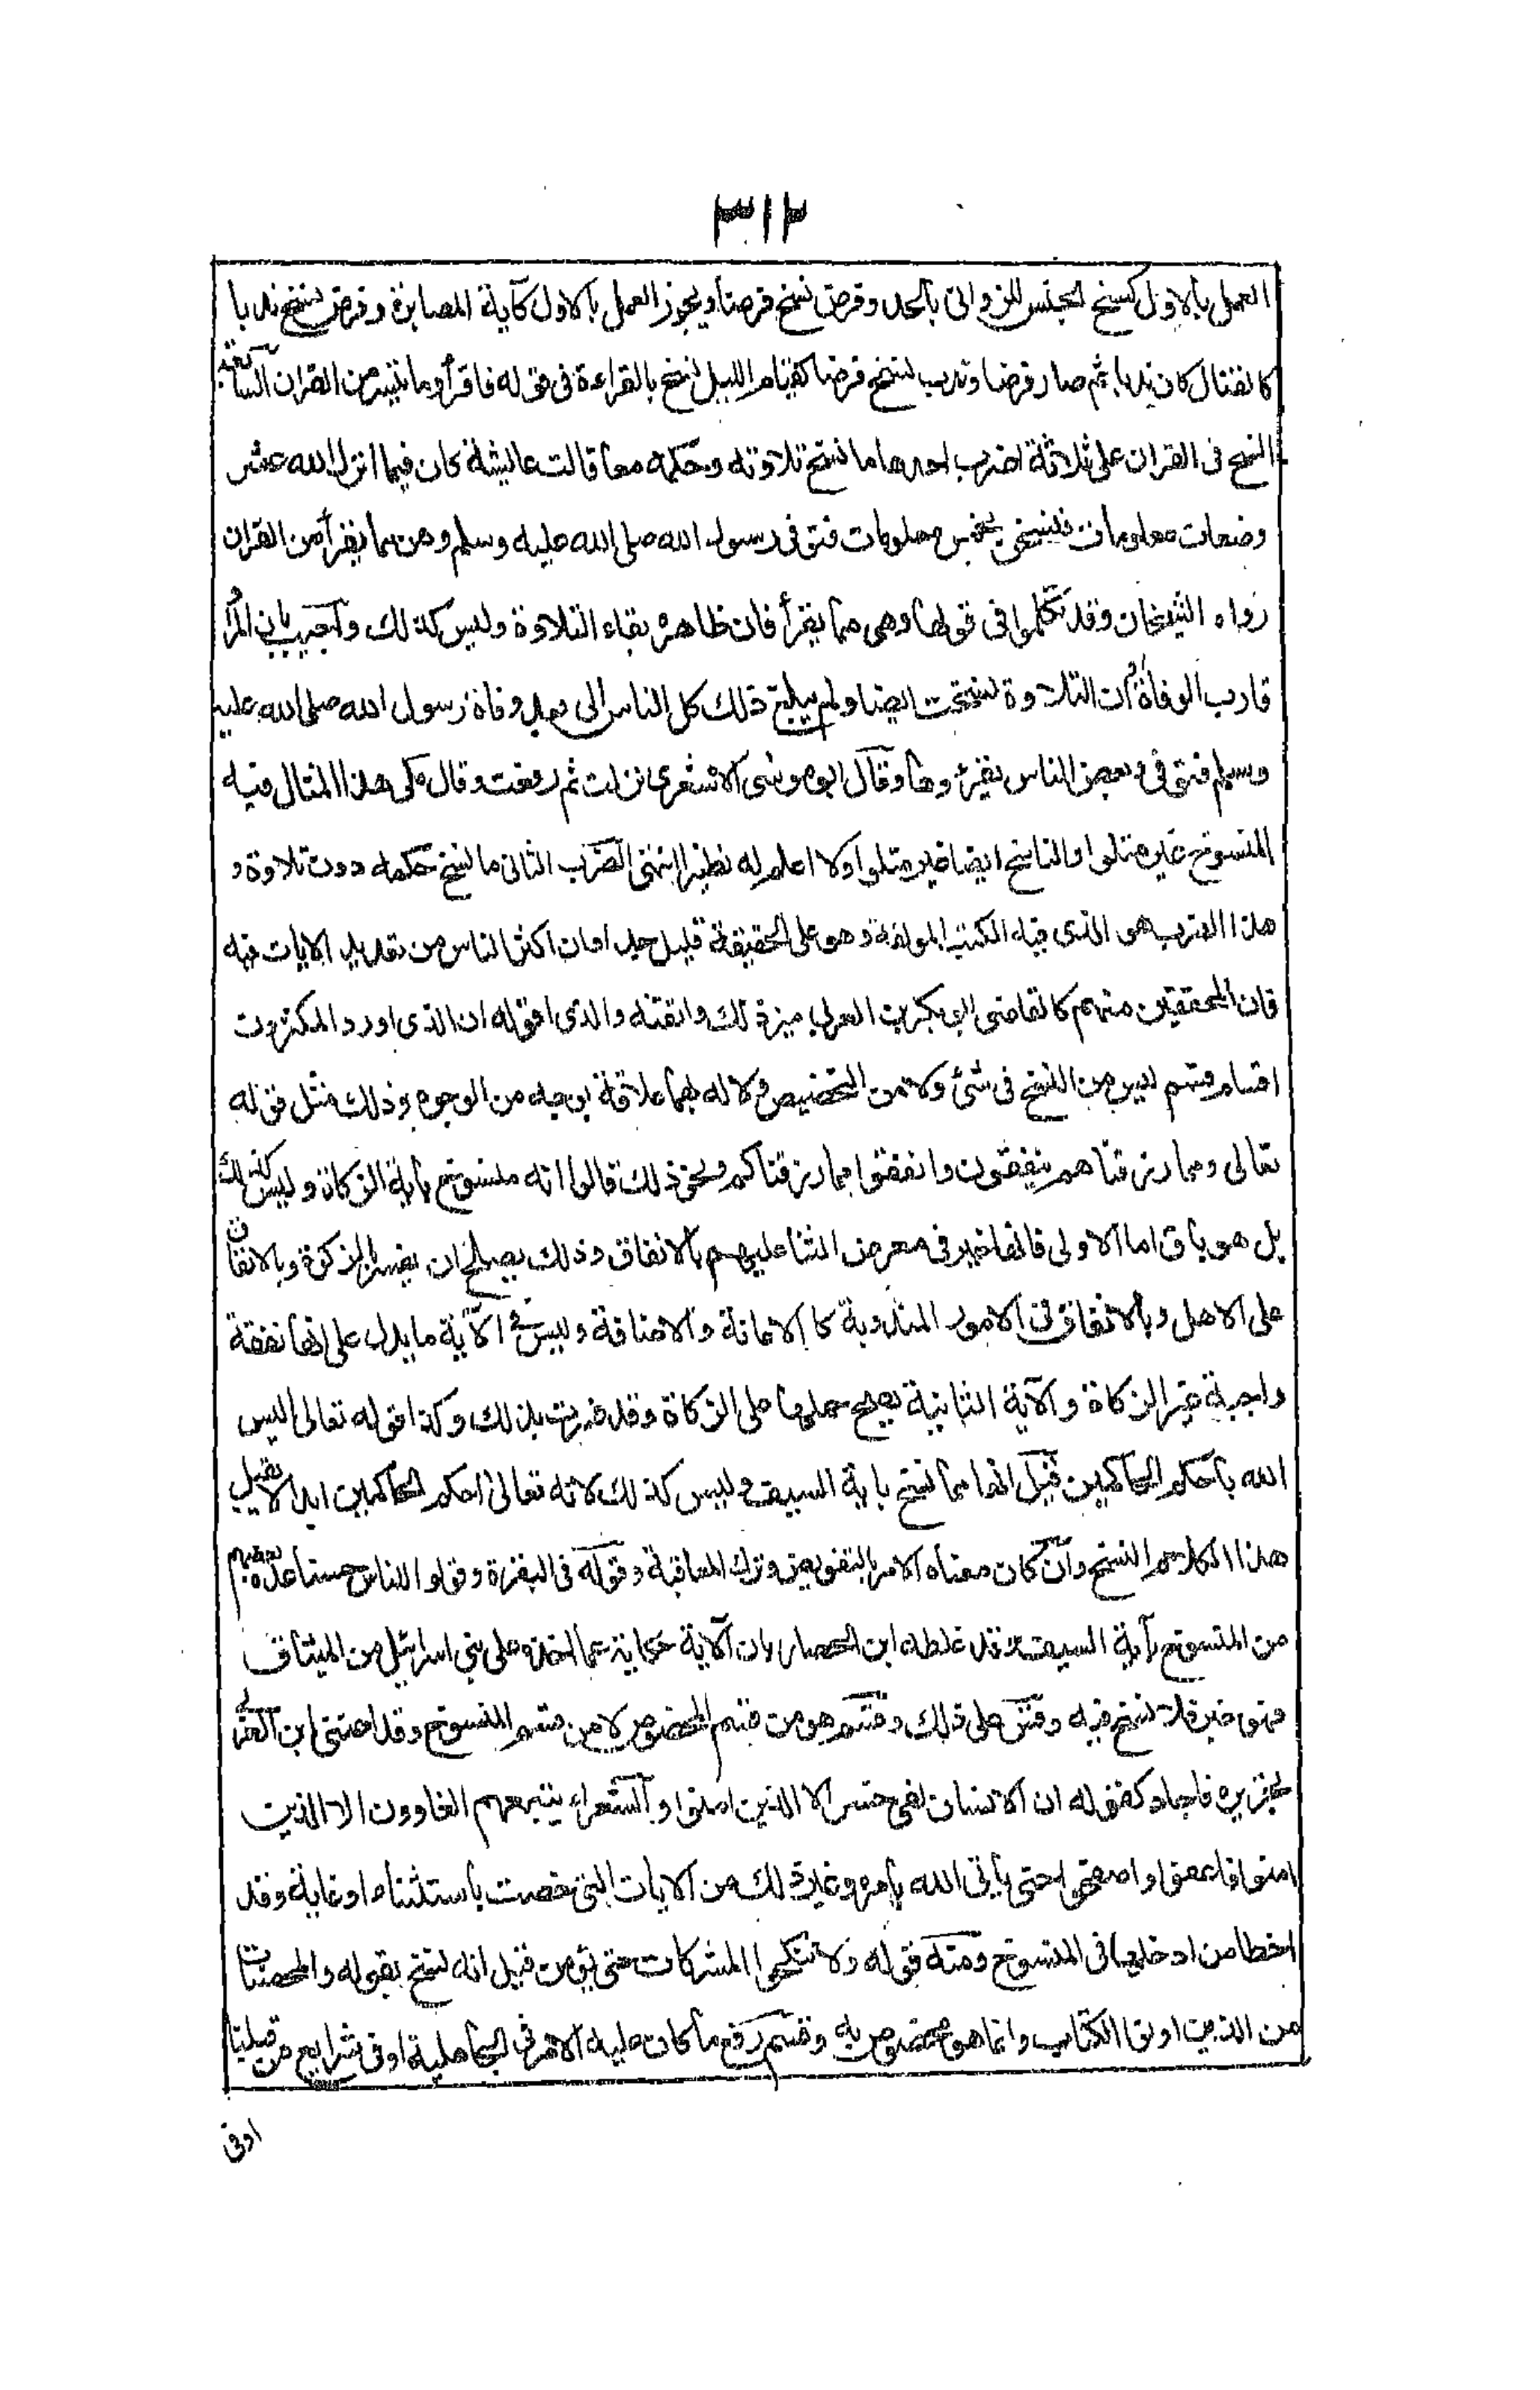 ٣١٢
العمل بالاول كنسخ الحبس للزوانى بالحد وفرض نسخ فرضا ويجوز العمل بالاول كآية المصابرة وفرض نسخ ندبا
كالقتال كان ندبا ثم صار فرضا وندب نسخ فرضا كقيام الليل نسخ بالقراءة فى قوله فاقرأوا ما تيسر من القران السابعة
النسخ فى القران على ثلاثة اضرب احدها ما نسخ تلاوته وحكمه معا قالت عايشة كان فيما انزل الله عشر
رضعات معلومات فنسخن بخمس معلومات فتوفى رسول الله صلى الله عليه وسلم وهن مما يقرأ من القران
رواه الشيخان وقد تكلموا فى قولها وهى مما يقرأ فان ظاهره بقاء التلاوة وليس كذلك وأجيب بان المراد
قارب الوفاة أو ان التلاوة نسخت ايضا ولم يبلغ ذلك كل الناس الى بعد وفاة رسول الله صلى الله عليه
وسلم فتوفى وبعض الناس يقرؤها وقال ابو موسى الاشعرى نزلت ثم رفعت وقال مكى هذا المثال فيه
المنسوخ غير متلوا والناسخ ايضا غير متلوا ولا اعلم له نظيرا انتهى الضرب الثانى ما نسخ حكمه دون تلاوة و
هذا الضرب هو الذى فيه الكتب المولفة وهو على الحقيقة قليل جدا وان اكثر الناس من تعديد الايات فيه
فان المحققين منهم كالقاضى ابى بكر بن العربى ميز ذلك واتقنه والذى اقوله ان الذى اورد المكثرون
اقسام قسم ليس من النسخ فى شئ ولا من التخصيص ولا له بهما علاقة بوجه من الوجوه وذلك مثل قوله
تعالى ومما رزقناهم ينفقون وانفقوا مما رزقناكم ونحو ذلك قالوا انه منسوخ بآية الزكاة وليس كذلك
بل هو باق اما الاولى فانها خبر فى معرض الثنا عليهم بالانفاق وذلك يصلح ان يفسر بالزكوة وبالانفاق
على الاهل وبالانفاق فى الامور المندوبة كالاعانة والاضافة وليس فى الآية ما يدل على انها نفقة
واجبة غير الزكاة والآية الثانية يصلح حملها على الزكاة وقد فسرت بذلك وكذا قوله تعالى اليس
الله باحكم الحاكمين قيل انها مما نسخ باية السيف وليس كذلك لانه تعالى احكم الحاكمين ابدا لا يقبل
هذا الكلام النسخ وان كان معناه الامر بالتفويض وترك المعاقبة وقوله فى البقرة وقولوا للناس حسنا عده بعضهم
من المنسوخ بآية السيف وقد غلطه ابن الحصار بان الآية حكاية عما اخذه على بنى اسرائيل من الميثاق
فهو خبر فلا نسخ فيه وقس على ذلك وقسم هو من قسم المخصوص لا من قسم المنسوخ وقد اعتنى ابن العربى
بتحريره فاجاد كقوله ان الانسان لفى خسر الا الذين امنوا والشعراء يتبعهم الغاوون الا الذين
امنوا فاعفوا واصفحوا حتى يأتى الله بأمره وغير ذلك من الايات التى خصت باستثناء او غاية وقد
اخطا من ادخلها فى المنسوخ ومنه قوله ولا تنكحوا المشركات حتى يؤمن قيل انه نسخ بقوله والمحصنات
من الذين اوتوا الكتاب وانما هو مخصوص به وقسم رفع ما كان عليه الامر فى الجاهلية او فى شرايع من قبلنا
اوفى